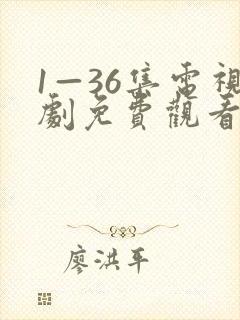 1—36集電視
劇免費觀看
廖洪平